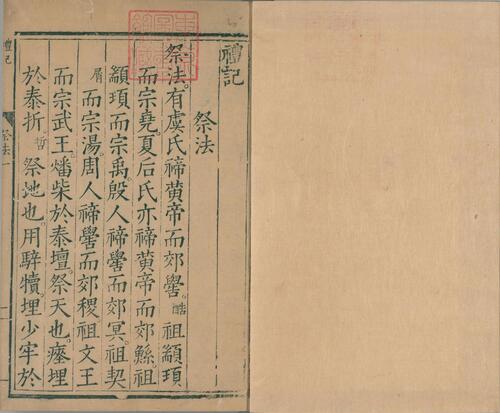 禮記
祭法
祭法。有虞氏禘黄帝而郊嚳。酷祖顓頊
而宗堯。夏后氏亦禘黄帝而郊鯀。祖
顓頊而宗禹。殷人禘嚳而郊冥。祖契
屑而宗湯。周人禘嚳而郊稷。祖文王
而宗武王。燔柴於泰壇。祭天也。瘞埋
於泰折。哲祭地也。用騂犢。埋少牢於
禮記
祭法
一